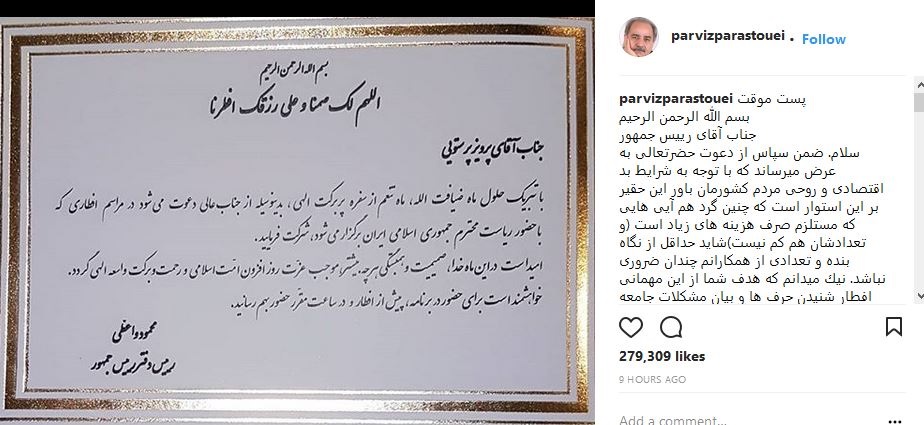 بسم الله الرحمن الرحیم
اللهم لک صمنا و علی رزقک افطرنا
جناب آقای پرویز پرستویی
با تبریک حلول ماه ضیافت الله، ماه تنعم از سفره پربرکت الهی، بدینوسیله از جنابعالی دعوت می‌شود در مراسم افطاری که
با حضور ریاست محترم جمهوری اسلامی ایران برگزار می‌شود، شرکت فرمایید.
امید است در این ماه خدا، صمیمیت و همبستگی هرچه بیشتر، موجب عزت روزافزون امت اسلامی و رحمت و برکت واسعه الهی گردد.
خواهشمند است برای حضور در برنامه، پیش از افطار و در ساعت مقرر حضور بهم رسانید.
محمود واعظی
رییس دفتر رییس جمهور
parvizparastouei • Follow
parvizparastouei پست موقت
بسم الله الرحمن الرحیم
جناب آقای رییس جمهور
سلام. ضمن سپاس از دعوت حضرتعالی به
عرض میرساند که با توجه به شرایط بد
اقتصادی و روحی مردم کشورمان باور این حقیر
بر این استوار است که چنین گرد هم آیی هایی
که مستلزم صرف هزینه های زیاد است (و
تعدادشان هم کم نیست)شاید حداقل از نگاه
بنده و تعدادی از همکارانم چندان ضروری
نباشد. نیك میدانم که هدف شما از این مهمانی
افطار شنیدن حرف ها و بیان مشکلات جامعه
279,309 likes
9 HOURS AGO
Add a comment...